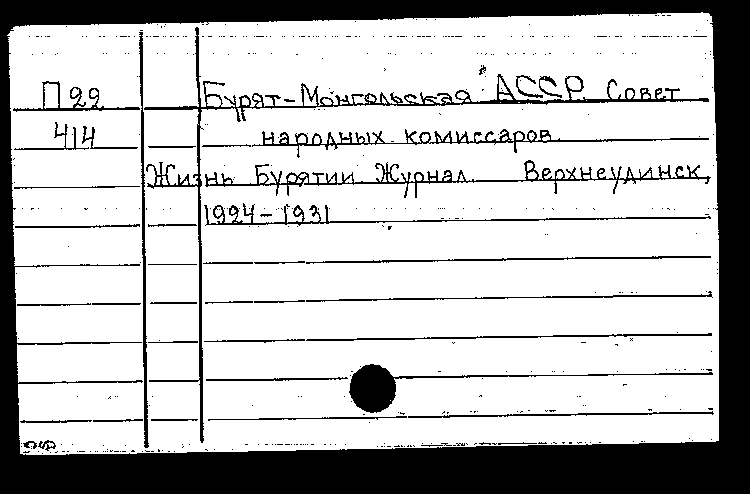 П22 Бурят-Монгольская АССР. Совет
414 народных комиссаров.
Жизнь Бурятии. Журнал. Верхнеудинск,
1924-1931